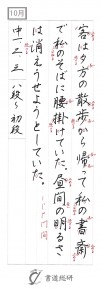 10月
客は夕方の散歩から帰って私の書斎
で私のそばに腰掛けていた。昼間の明るさ
は消えうせようとしていた。
中一、二、三 八段〜初段
書道総研